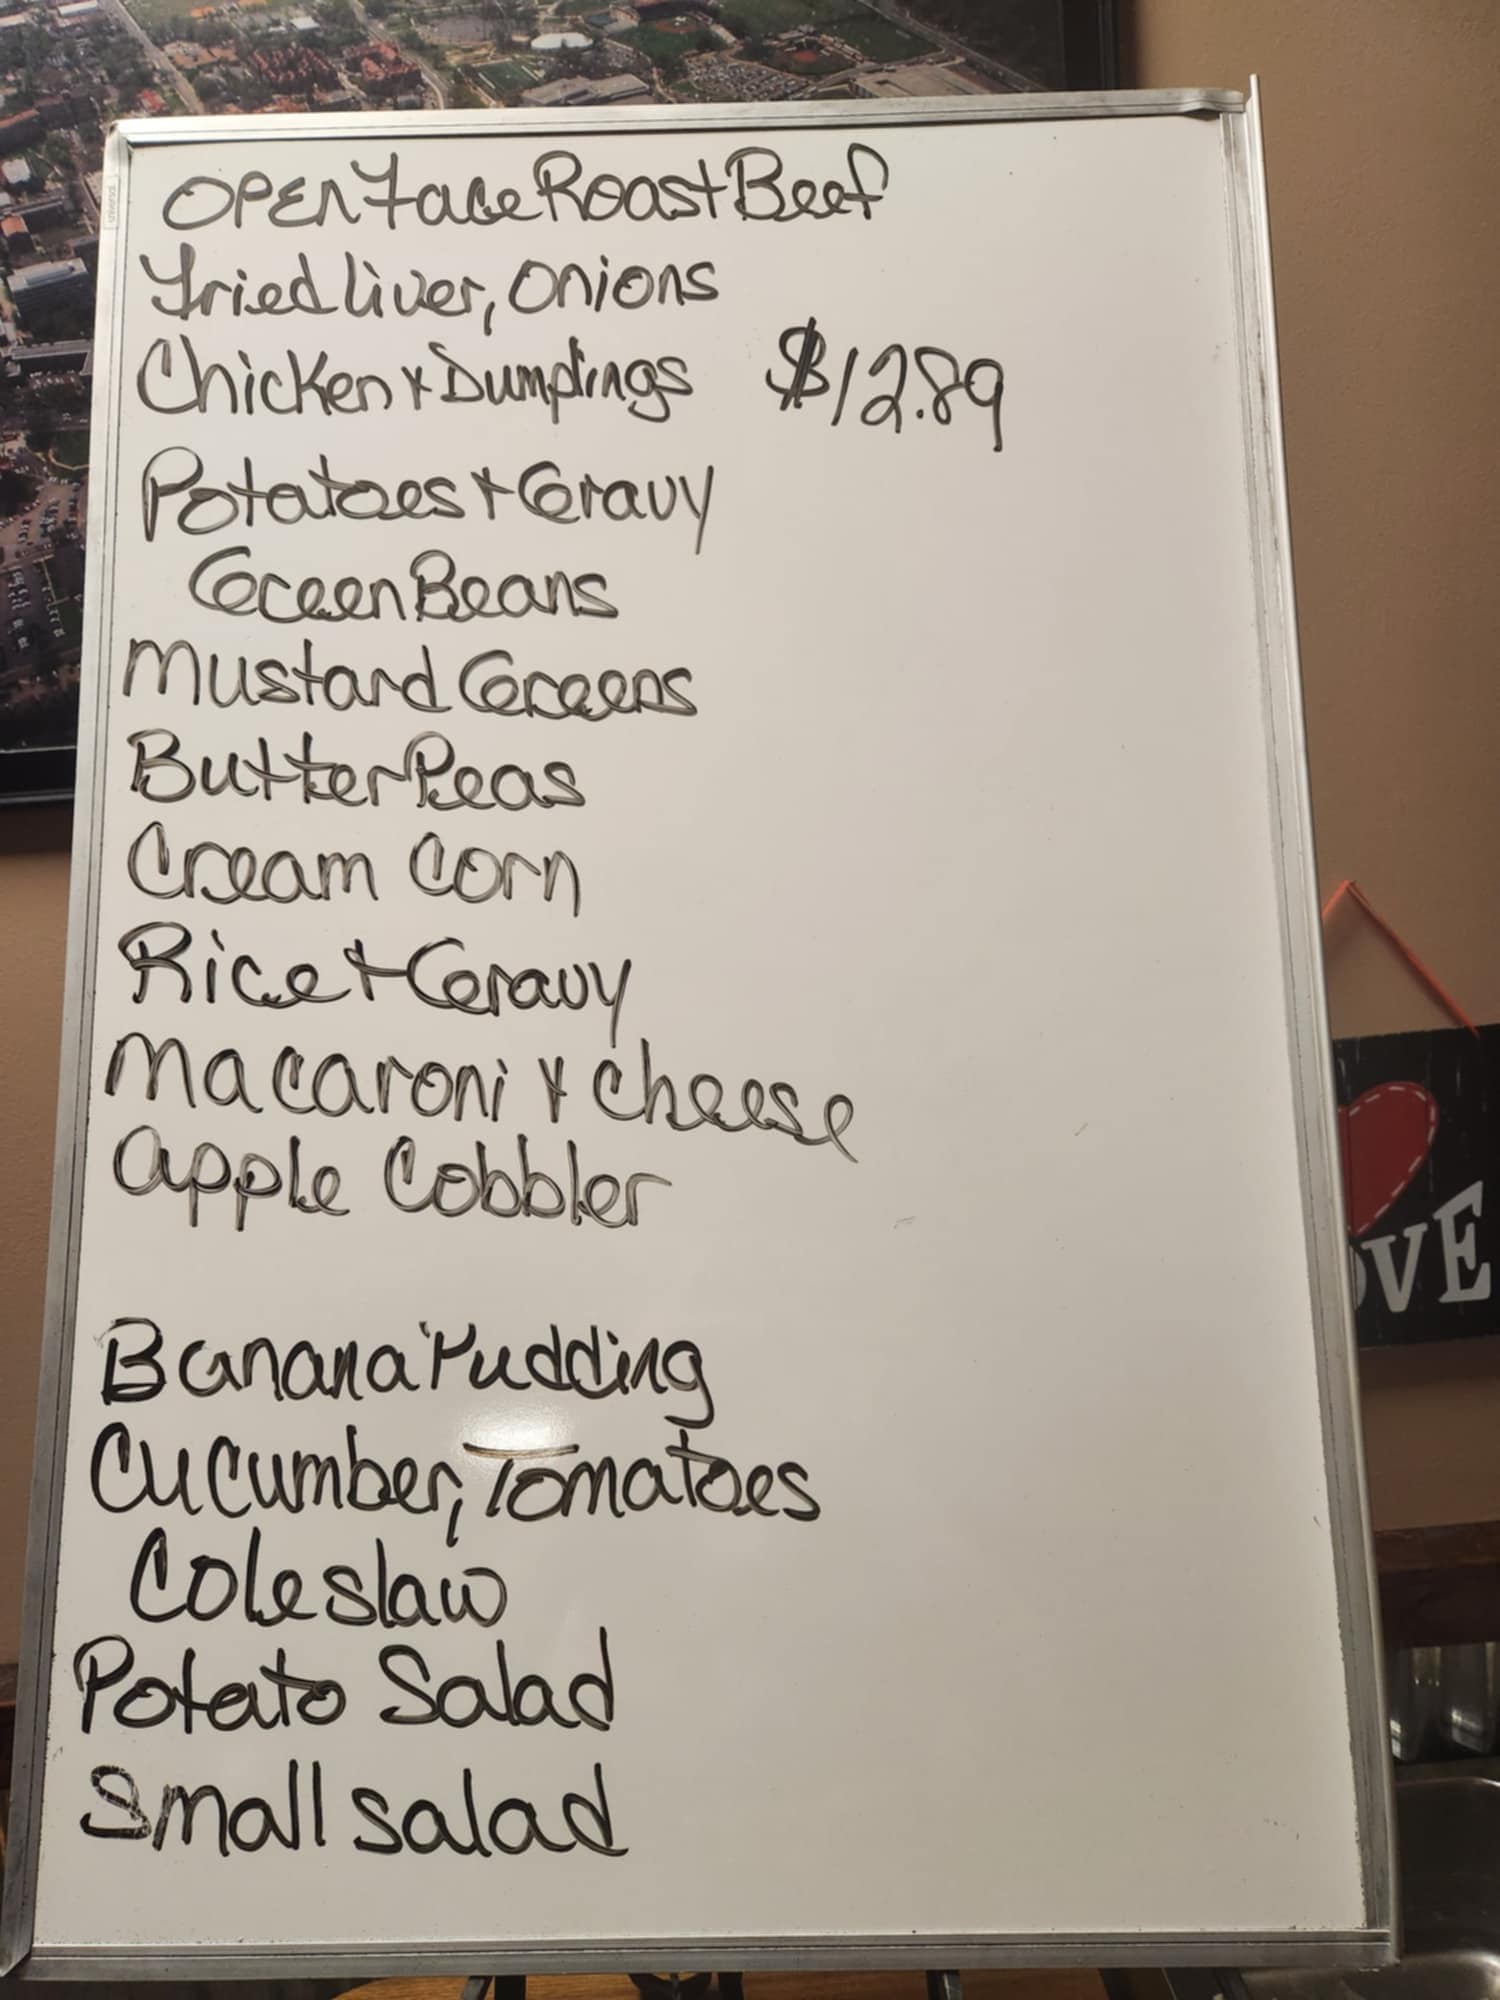 Open Face Roast Beef
Fried liver, Onions
Chicken & Dumplings $12.89
Potatoes + Gravy
Green Beans
Mustard Greens
Butter Peas
Cream Corn
Rice + Gravy
Macaroni & Cheese
Apple Cobbler
Banana Pudding
Cucumber, Tomatoes
Coleslaw
Potato Salad
Small salad
OVE